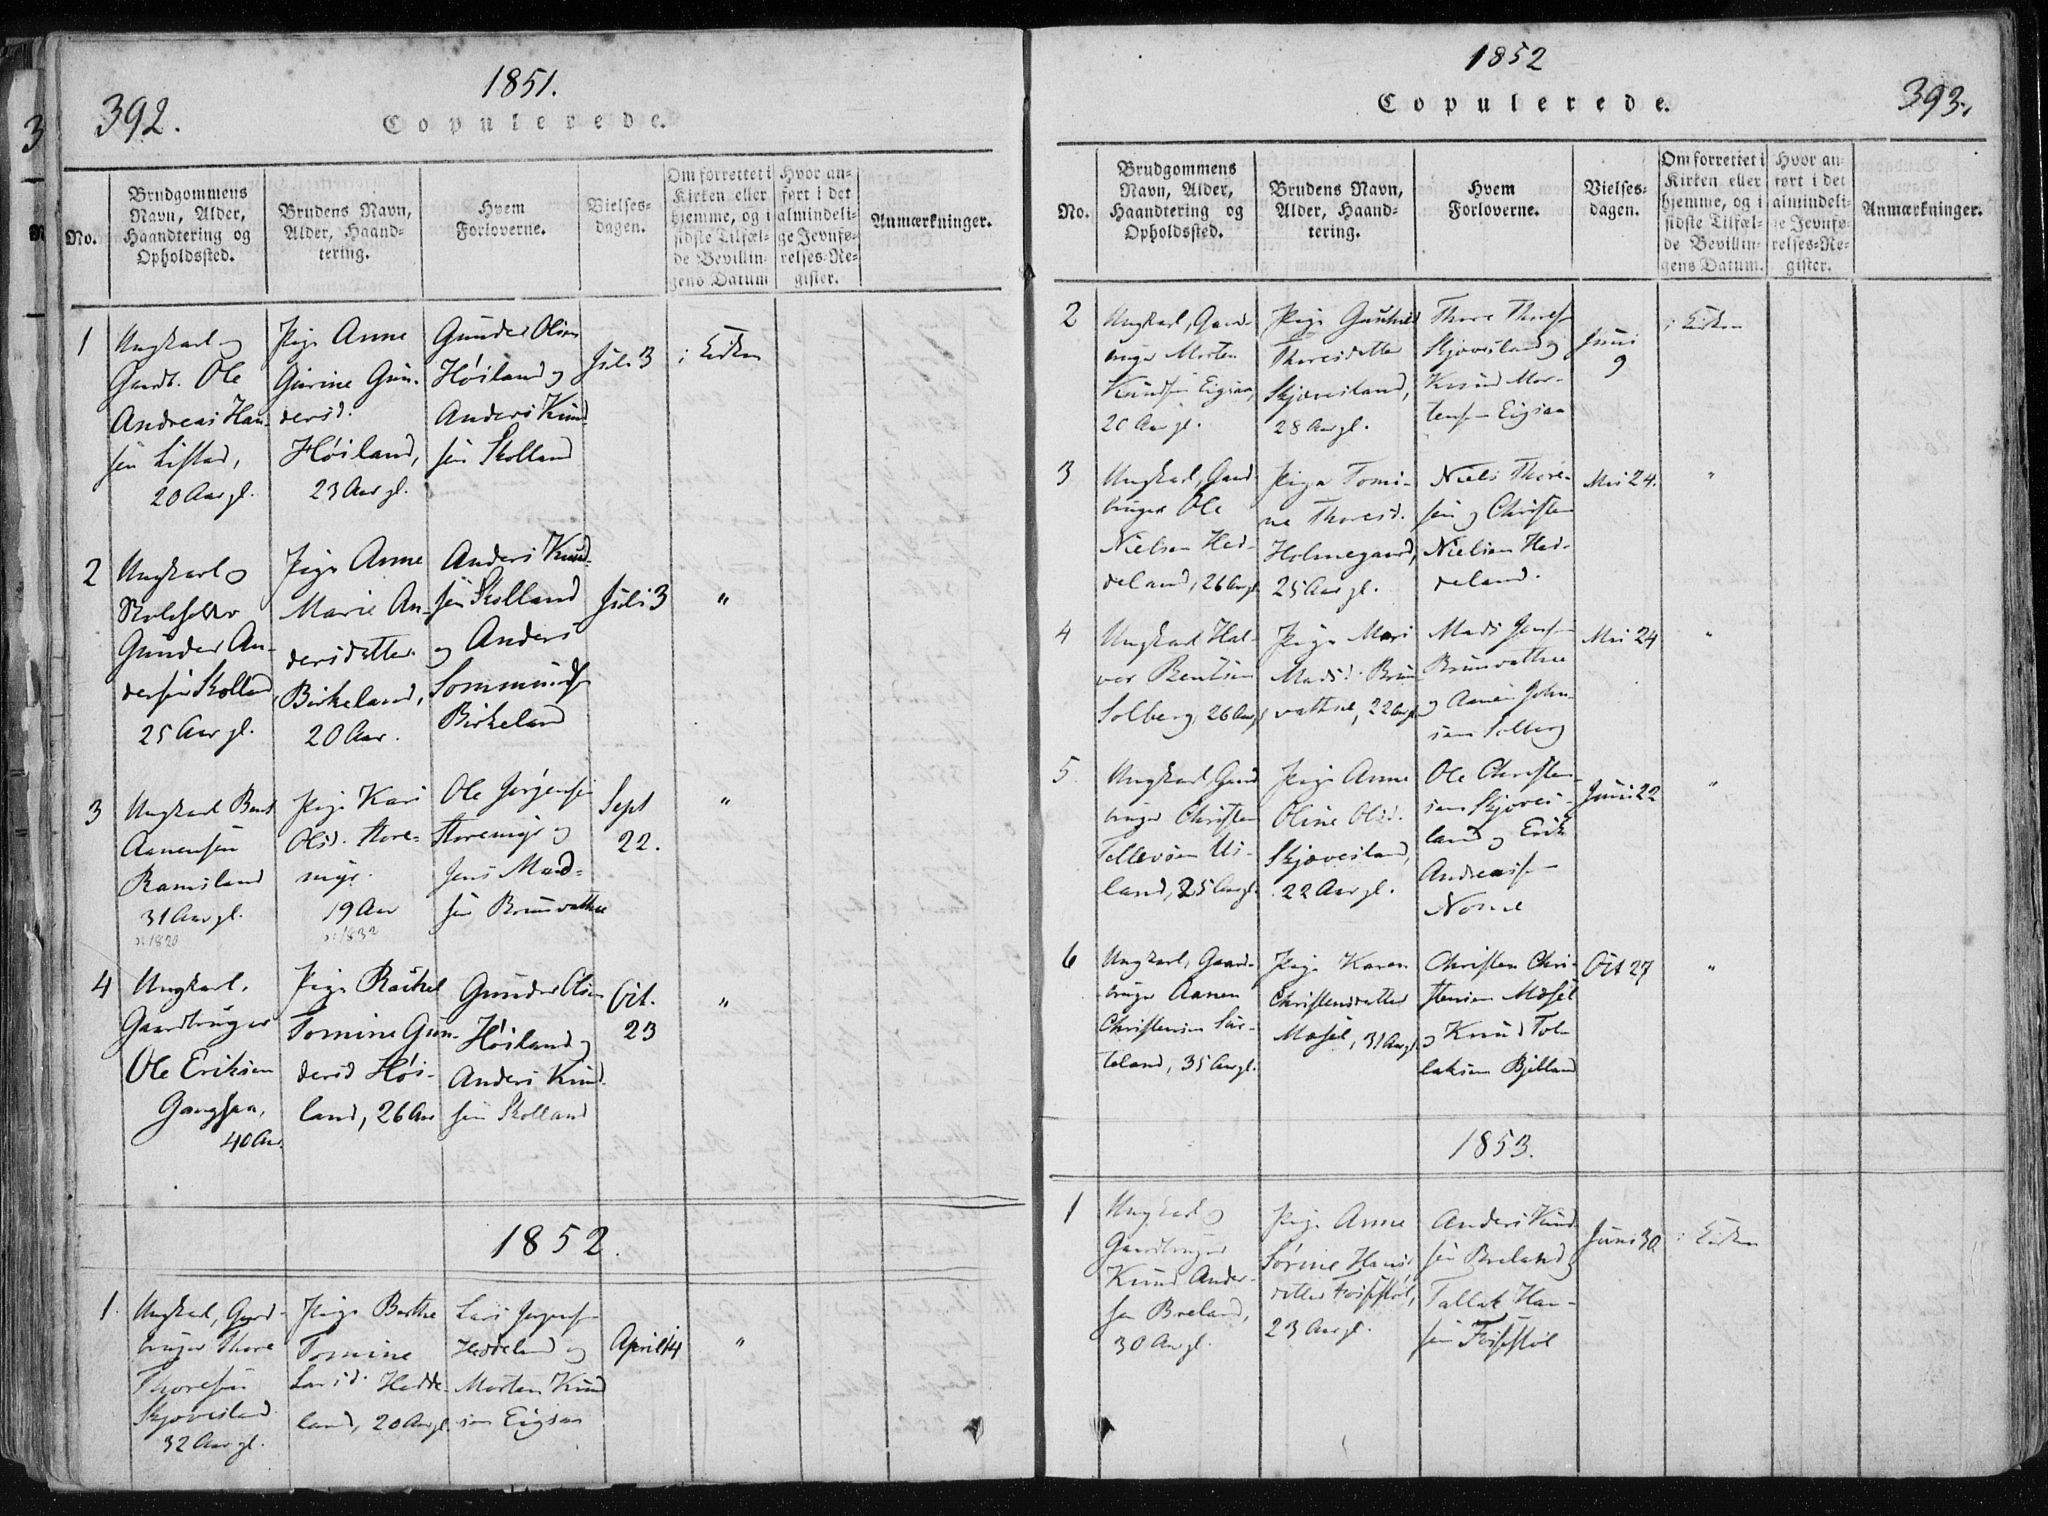 1851.
392.
Copulerede.
No.
Brudgommens
Navn, Alder,
Haandtering og
Opholdssted.
Brudens Navn,
Alder, Haand-
tering.
Hvem
Forloverne.
Vielses-
dagen.
Om forrettet i
Kirken eller
hjemme, og i
sidste Tilfæl-
de Bevillin-
gens Datum
Hvor an-
ført i det
almindeli-
ge Jevnfø-
relses-Re-
gister.
Anmærkninger.
1
Ungkarl og
Gaardb. Ole
Andreas Han-
sen Listad,
20 Aar gl.
Pige Anne
Gurine Gun-
dersd.
Høiland,
23 Aar gl.
Gunder Olsen
Høiland og
Anders Knud-
sen Skolland
Juli 3
i Kirken
2
Ungkarl og
Gunder An-
dersen Skolland
25 Aar gl.
Pige Anne
Marie An-
dersdatter
Birkeland,
20 Aar.
Anders Knud-
sen Skolland
og Anders
Sommunds.
Birkeland
Juli 3
"
3
Ungkarl Bent
Aanensen
Ramsland
31 Aar gl.
1820
Pige Kari
Olsd. Hore-
myr.
19 Aar
1832
Ole Jørgensen
Horemyr og
Jens Mad-
sen Brunvathne
Sept
22.
"
4
Ungkarl,
Gaardbruger
Ole Eriksen
Gangsaa,
40 Aar.
Pige Rachel
Tomine Gun-
dersd Høi-
land, 26 Aar
Gunder Olsen
Høiland og
Anders Knud-
sen Skolland
Oct.
23
"
1852.
1.
Ungkarl, Gaard-
bruger Thore
Thoresen
Skjævesland
32 Aar gl.
Pige Berthe
Tomine
Larsd. Hedde-
land, 20 Aar gl.
Lars Jørgensen
Heddeland og
Morten Knud
sen Eigsaa
April 14
"
1852
Copulerede.
393.
No.
Brudgommens
Navn, Alder,
Haandtering og
Opholdssted.
Brudens Navn,
Alder, Haand-
tering.
Hvem
Forloverne.
Vielses-
dagen.
Om forrettet i
Kirken eller
hjemme, og i
sidste Tilfæl-
de Bevillin-
gens Datum.
Hvor an-
ført i det
almindeli-
ge Jevnfø-
relses-Re-
gister.
Anmærkninger.
2
Ungkarl, Gaard-
bruger Morten
Knudsen Eigsaa,
20 Aar gl.
Pige Gunhild
Thoresdatter
Skjævesland,
28 Aar gl.
Thore Thores.
Skjævesland og
Knud Mor-
tensen Eigsaa
Juni
9
i Kirken
3
Ungkarl, Gaard-
bruger Ole
Nielsen Hed-
deland, 26 Aar gl.
Pige Tomi-
ne Thoresd.
Holmegaard,
25 Aar gl.
Niels Thore-
sen og Christen
Nielsen Hed-
deland.
Mai 24.
"
4
Ungkarl Hal-
vor Bentsen
Solberg, 26 Aar gl
Pige Mari
Madsd. Brun
vathne, 22 Aar gl
Mads Jensen
Brunvathne
og Aanen John-
sen Solberg
Mai 24
"
5
Ungkarl, Gaard
bruger Christen
Tellevsen Us-
land, 25 Aar gl.
Pige Anne
Oline Olsd.
Skjævesland,
22 Aar gl.
Ole Christen-
sen Skjæves-
land og Erik
Andreassen
Nome
Juni 22
"
6
Ungkarl, Gaard-
bruger Aanen
Christensen
teland, 35 Aar gl.
Pige Karen
Christensdatter
Mosel, 31 Aar gl.
Christen Chri-
stensen Mosel
og Knud Tol-
laksen Bjelland
Oct 27
"
1853.
1
Ungkarl og
Gaardbruger
Knud Ander-
sen Breland,
30 Aar gl.
Pige Anne
Sørine Hans-
datter Fosstøl,
23 Aar gl.
Anders Knud
sen Breland og
Tallak Han-
sen Fosstøl
Juni 30.
i Kirken